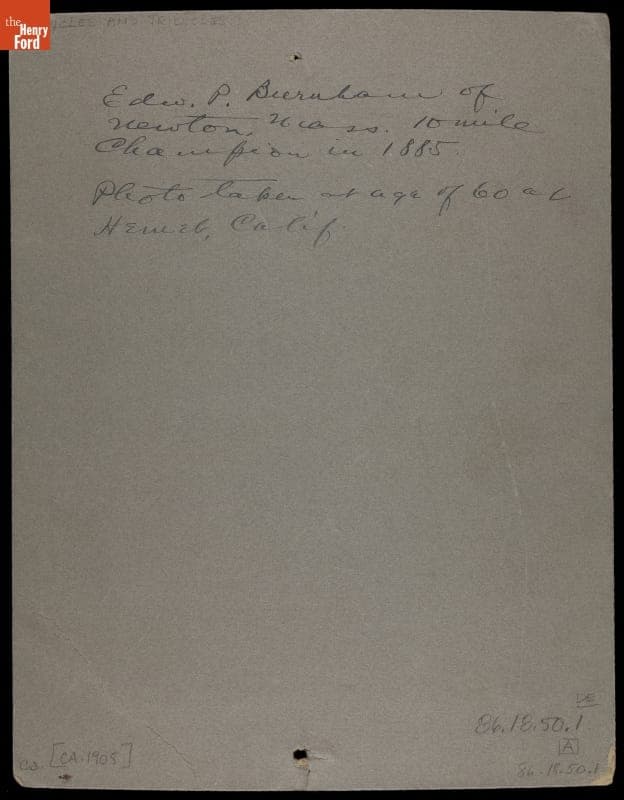 the
Henry
Ford
CYCLES AND TRICYCLES
Edw. P. Burnham of
Newton, Mass. 10 mile
Champion in 1885.
Photo taken at age of 60 at
Hemet, Calif.
DE
86.18.50.1
A
ca. [CA. 1905]
86.18.50.1